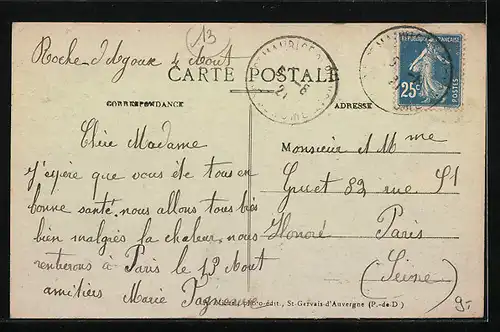 13
Roche d'Agoux 4 Aout
CARTE POSTALE
CORRESPONDANCE
ADRESSE
REPUBLIQUE FRANÇAISE
25c
Chère Madame
j'espère que vous ête tous en
bonne santé. nous allons tous bie
bien malgrés la chaleur. nous
rentrerons à Paris le 13 Aout
amitiers Marie
Monsieur et Mme
Gruet 82 rue St
Honoré Paris
(Seine)
édit., St-Gervais d'Auvergne (P.-de-D.)
9-